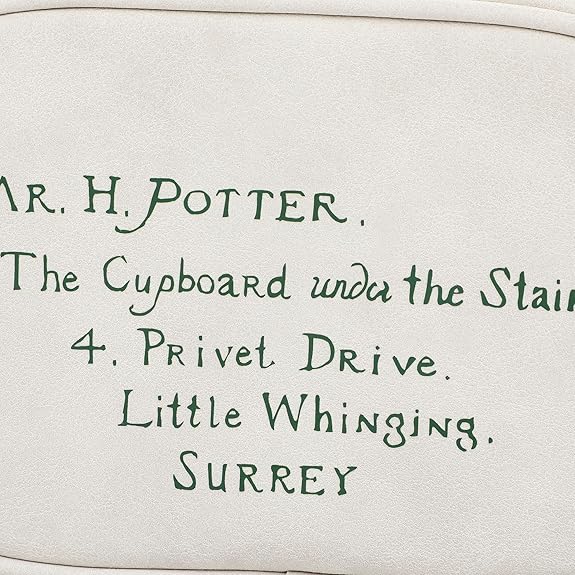 MR. H. POTTER.
The Cupboard under the Stair
4. Privet Drive.
Little Whinging.
SURREY